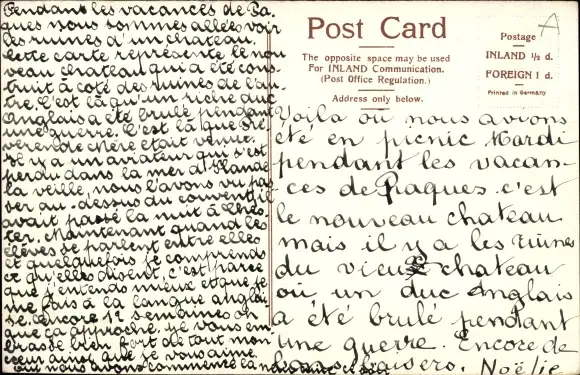 Pendant les vacances de Pa-
ques nous sommes allées voir
les ruines d'un chateau.
Cette carte représente le nou
veau chateau qui a été cons
truit à coté des ruines de l'au
tre. C'est là qu'un riche duc
Anglais a été brulé pendant
une guerre. C'est là que Ré
vérende Mère était venue.
Il y a un aviateur qui s'est
perdu dans la mer d'Irlande
la veille, nous l'avons vu pas
ser au-dessus du couvent, il
avait passé la nuit à Ches
ter. Maintenant quand les
élèves se parlent entre elles
et quelquefois je comprends
ce qu'elles disent, c'est parce
que j'entends mieux et que je
me fais à la langue anglai
se. Encore 12 semaines oh
que ça approche. Je vous em
brasse bien fort de tout mon
cœur ainsi que je vous aime.
ou nous avons commencé la
Post Card
The opposite space may be used
For INLAND Communication.
(Post Office Regulation.)
Address only below.
Postage
INLAND ½ d.
FOREIGN 1 d.
Printed in Germany
A
Voilà où nous avions
été en picnic Mardi
pendant les vacan-
ces de Paques. c'est
le nouveau chateau
mais il y a les ruines
du vieux chateau
où un duc Anglais
a été brulé pendant
une guerre. Encore de
bons baisers. Noëlie